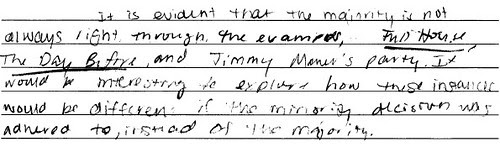 It is evident that the majority is not
always right, through the examples, Full House,
The Day Before, and Jimmy Moner's party. It
would be interesting to explore how these instances
would be different if the minority decision was
adhered to, instead of the majority.